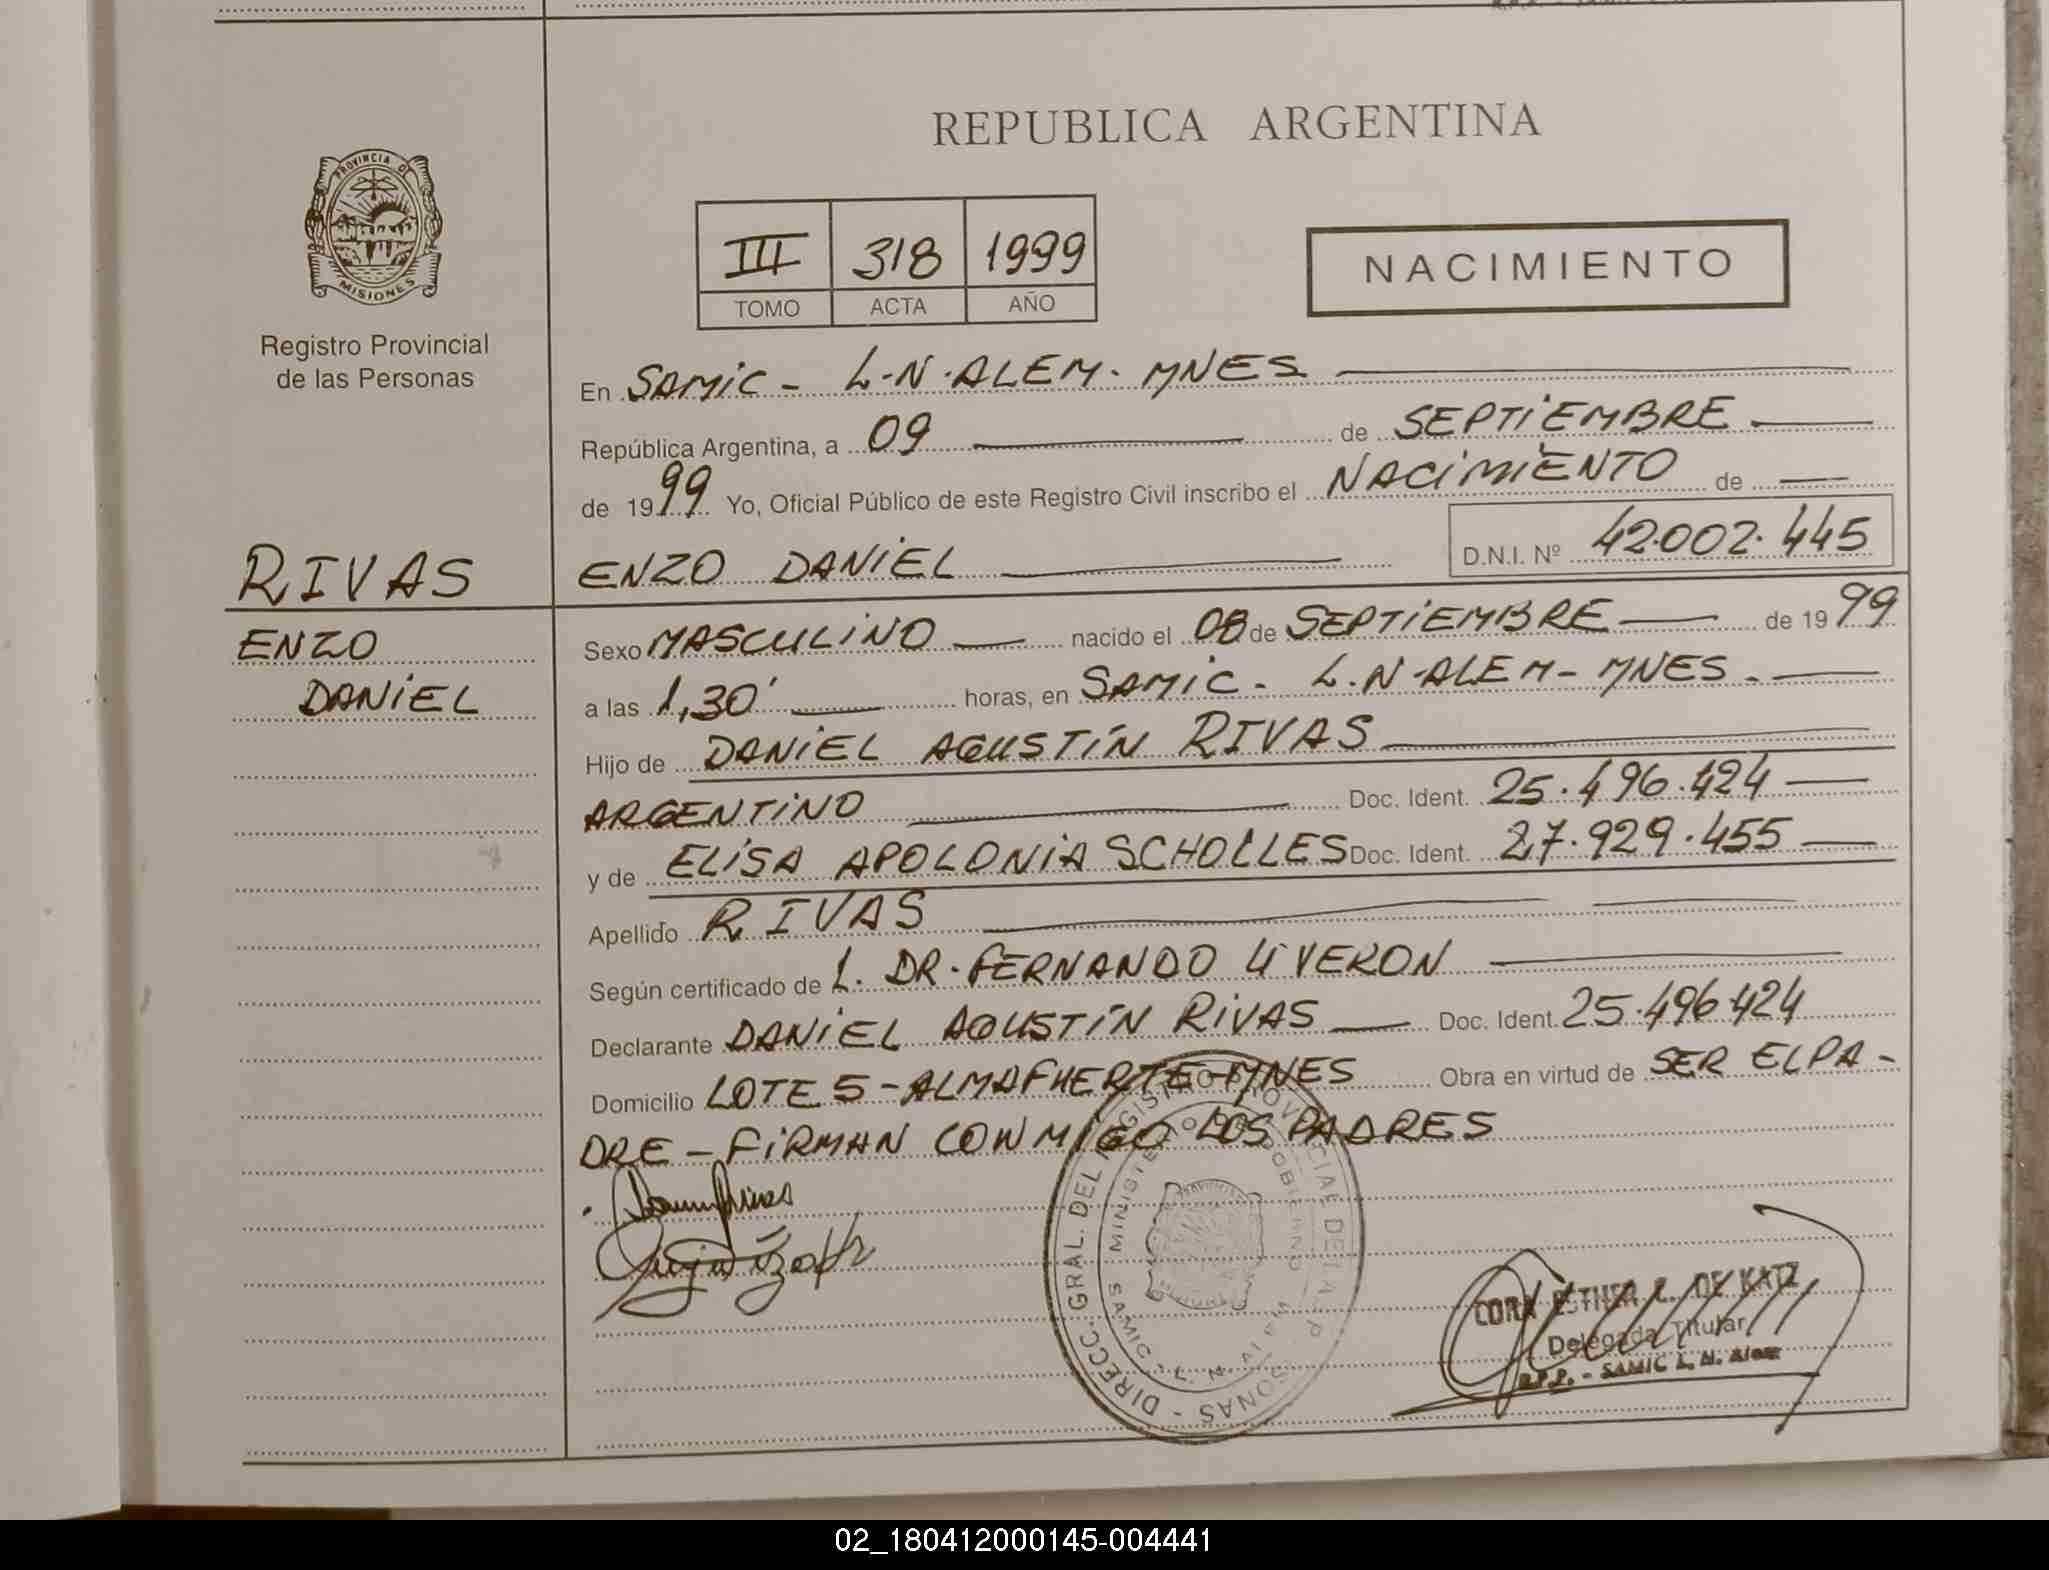 REPUBLICA ARGENTINA
PROVINCIA DE
MISIONES
Registro Provincial
de las Personas
III 318 1999
TOMO ACTA AÑO
NACIMIENTO
En SAMIC - L-N-ALEM- MNES
República Argentina, a 09 de SEPTIEMBRE
de 1999 Yo, Oficial Público de este Registro Civil inscribo el NACIMIENTO de
RIVAS
ENZO DANIEL
D.N.I. Nº 42.002.445
ENZO
DANIEL
Sexo MASCULINO nacido el 08 de SEPTIEMBRE de 1999
a las 1,30' horas, en SAMIC - L.N-ALEM-MNES.
Hijo de DANIEL AGUSTÍN RIVAS
ARGENTINO Doc. Ident. 25.496.424
y de ELISA APOLONIA SCHOLLES Doc. Ident. 27.929.455
Apellido RIVAS
Según certificado de L. DR. FERNANDO VERON
Declarante DANIEL AGUSTÍN RIVAS Doc. Ident. 25.496.424
Domicilio LOTE 5 - ALMAFUERTE-MNES Obra en virtud de SER EL PA-
DRE - FIRMAN CONMIGO LOS PADRES
DIRECC. GRAL. DEL REGISTRO PROVINCIAL DE LAS PERSONAS
MINISTERIO DE GOBIERNO
SAMIC - L. N. ALEM
CORA ESTHER L. DE KATZ
Delegada Titular
R.P.P. - SAMIC L. N. Alem
02_180412000145-004441